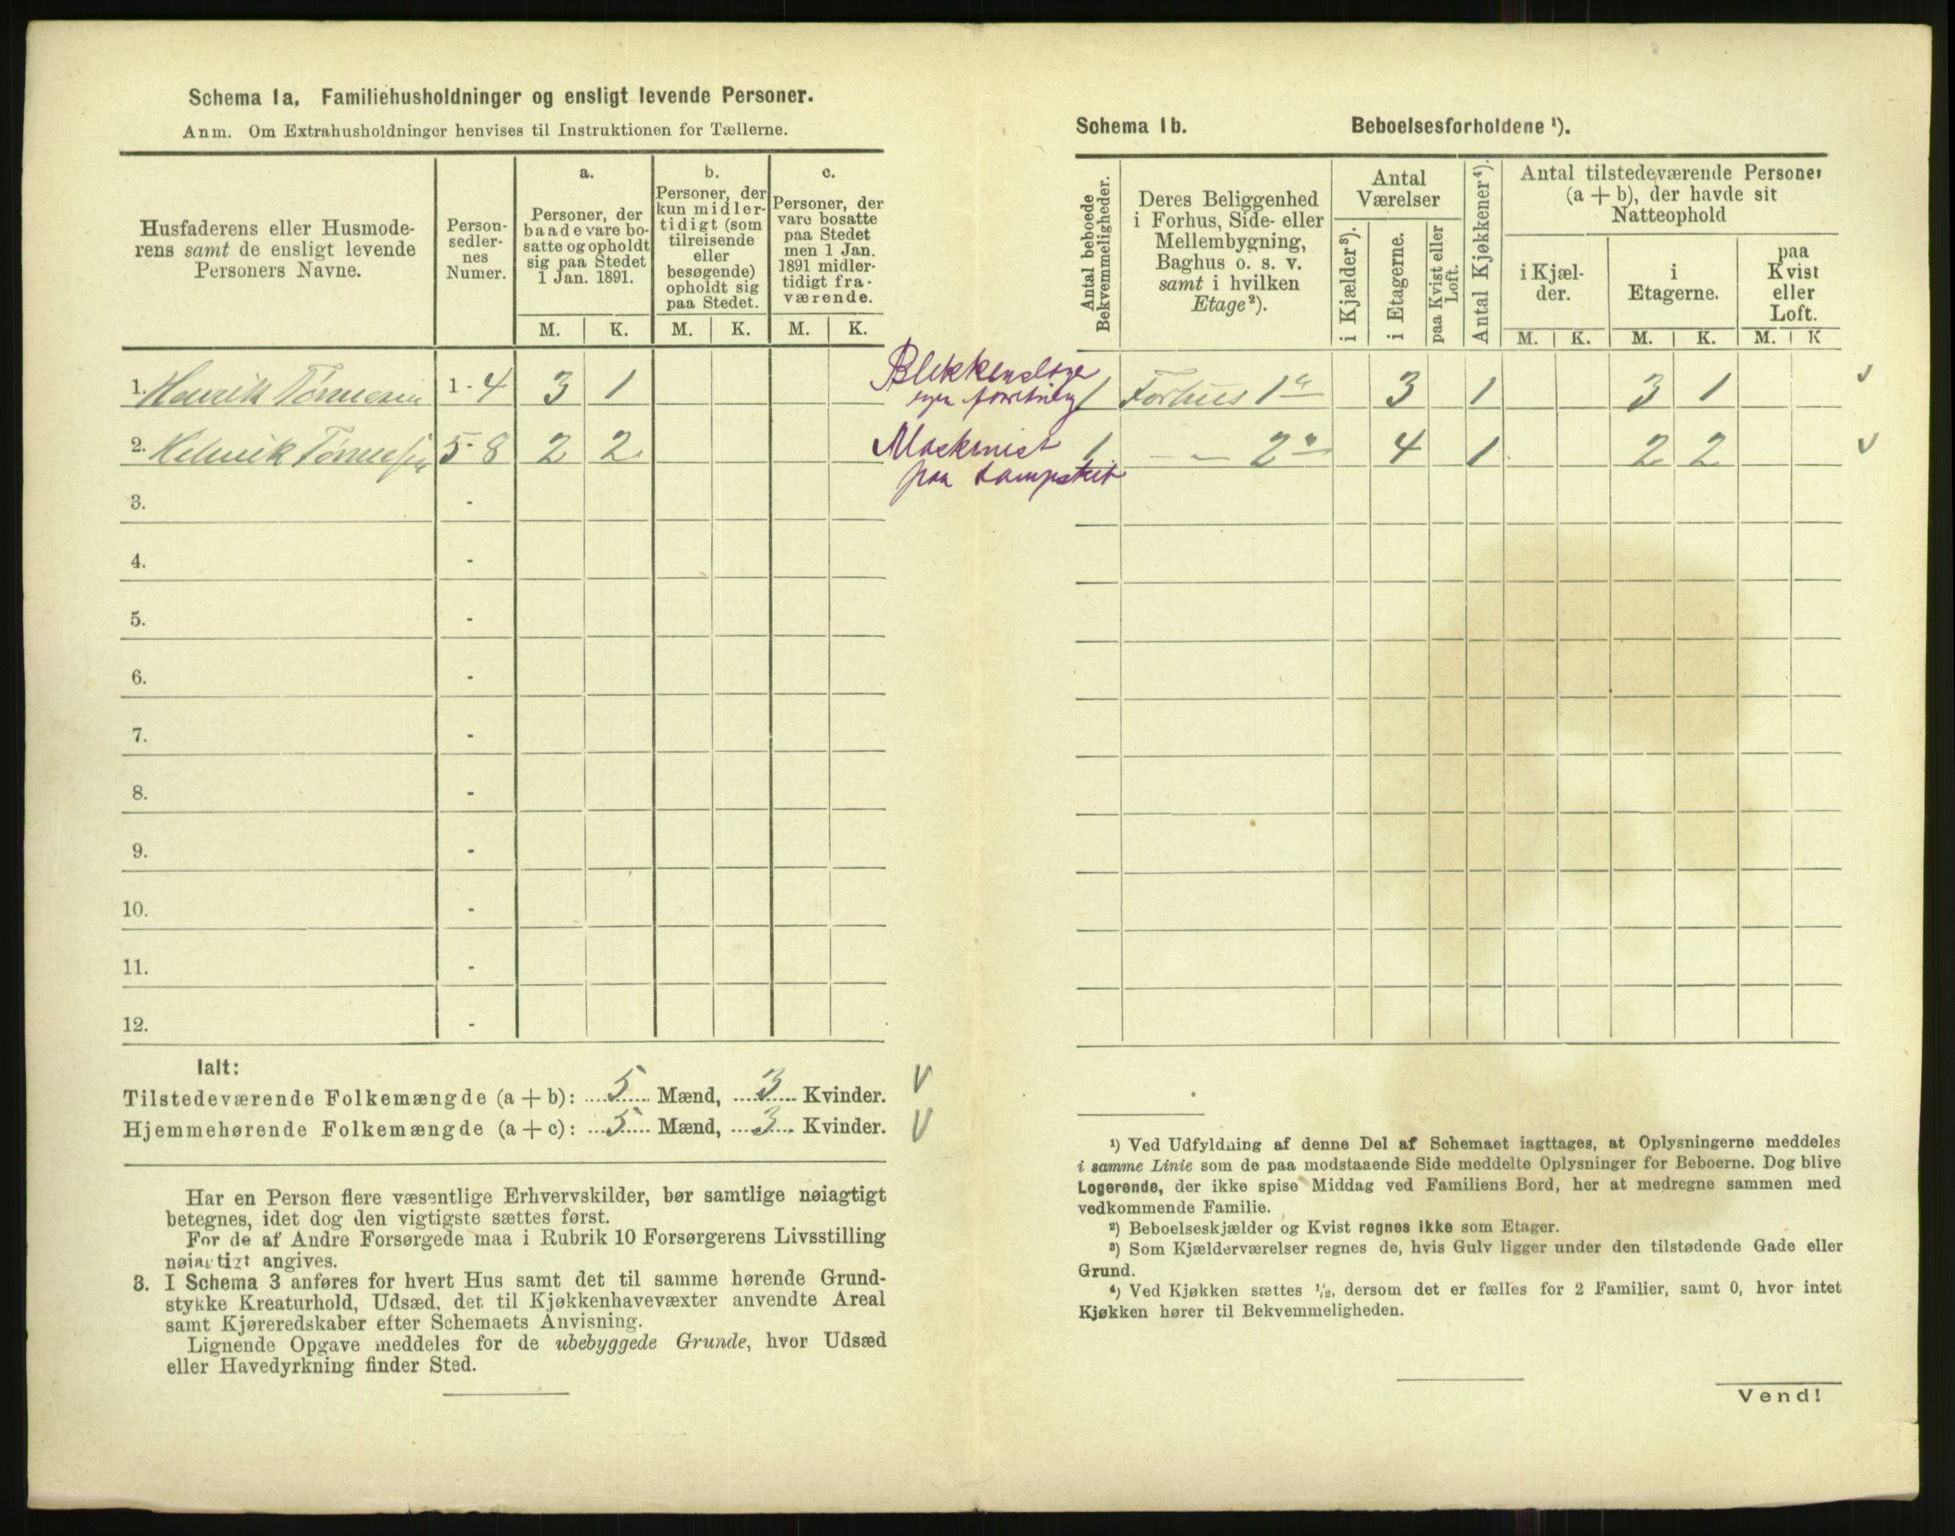 Schema 1a. Familiehusholdninger og ensligt levende Personer.
Anm. Om Extrahusholdninger henvises til Instruktionen for Tællerne.
Husfaderens eller Husmode-
rens samt de ensligt levende
Personers Navne.
Person-
sedler-
nes
Numer.
a.
Personer, der
baade vare bo-
satte og opholdt
sig paa Stedet
1 Jan. 1891.
b.
Personer, der
kun midler-
tidigt (som
tilreisende
eller
besøgende)
opholdt sig
paa Stedet.
c.
Personer, der
vare bosatte
paa Stedet
men 1 Jan.
1891 midler-
tidigt fra-
værende.
M. K. M. K. M. K.
1. Henrik Tørnesen 1-4 3 1
2. Henrik 5-8 2 2
3. -
4. -
5. -
6. -
7. -
8. -
9. -
10. -
11. -
12. -
Ialt:
Tilstedeværende Folkemængde (a + b): 5 Mænd, 3 Kvinder. V
Hjemmehørende Folkemængde (a + c): 5 Mænd, 3 Kvinder. V
Har en Person flere væsentlige Erhvervskilder, bør samtlige nøiagtigt
betegnes, idet dog den vigtigste sættes først.
For de af Andre Forsørgede maa i Rubrik 10 Forsørgerens Livsstilling
nøiagtigt angives.
3. I Schema 3 anføres for hvert Hus samt det til samme hørende Grund-
stykke Kreaturhold, Udsæd, det til Kjøkkenhavevæxter anvendte Areal
samt Kjøreredskaber efter Schemaets Anvisning.
Lignende Opgave meddeles for de ubebyggede Grunde, hvor Udsæd
eller Havedyrkning finder Sted.
Schema 1b. Beboelsesforholdene ¹).
Antal beboede
Bekvemmeligheder.
Deres Beliggenhed
i Forhus, Side- eller
Mellembygning,
Baghus o. s. v.
samt i hvilken
Etage²).
Antal
Værelser
i Kjælder³).
i Etagerne.
paa Kvist eller
Loft.
Antal Kjøkkener⁴).
Antal tilstedeværende Personer
(a + b), der havde sit
Natteophold
i Kjæl-
der.
i
Etagerne.
paa
Kvist
eller
Loft.
M. K. M. K. M. K
Blikkenslager
egen forretning
1 Forhus 1ª 3 1 3 1
Maskinist
paa Dampskib
1 - - 2 4 1 2 2
¹) Ved Udfyldning af denne Del af Schemaet iagttages, at Oplysningerne meddeles
i samme Linie som de paa modstaaende Side meddelte Oplysninger for Beboerne. Dog blive
Logerende, der ikke spise Middag ved Familiens Bord, her at medregne sammen med
vedkommende Familie.
²) Beboelseskjælder og Kvist regnes ikke som Etager.
³) Som Kjælderværelser regnes de, hvis Gulv ligger under den tilstødende Gade eller
Grund.
⁴) Ved Kjøkken sættes ½, dersom det er fælles for 2 Familier, samt 0, hvor intet
Kjøkken hører til Bekvemmeligheden.
Vend!